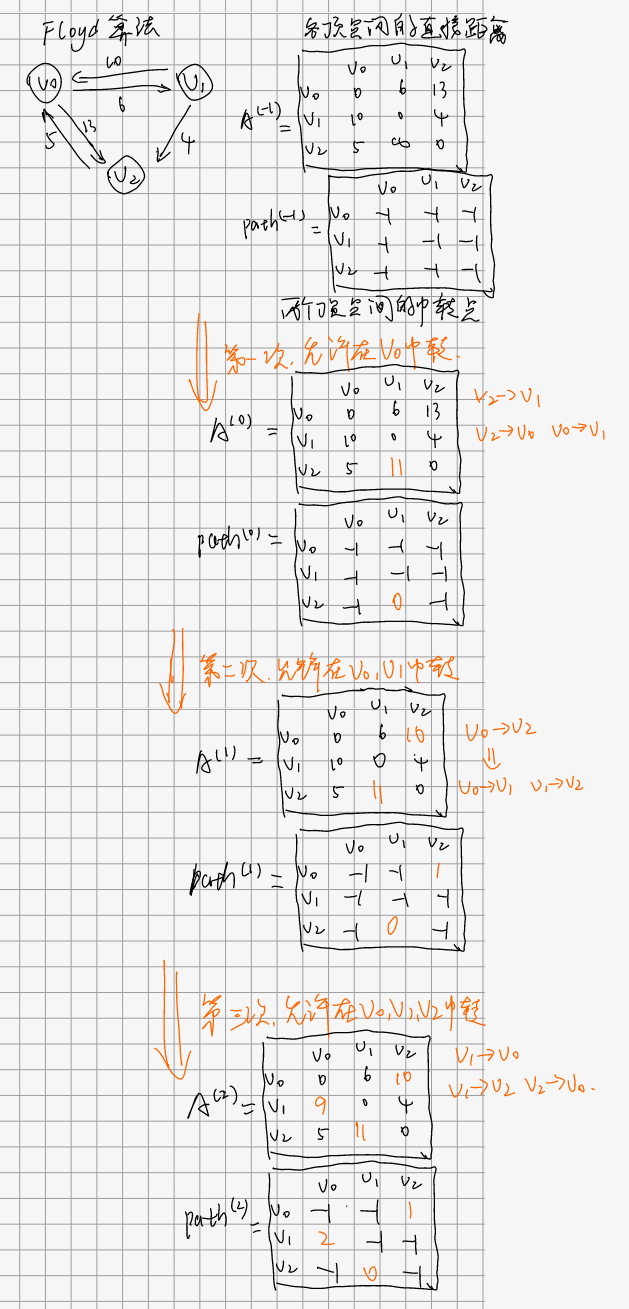 Floyd 算法
各顶点间的直接距离
10
V0 V1
6
5 13 4
V2
V0 V1 V2
V0 0 6 13
A(-1) = V1 10 0 4
V2 5 ∞ 0
V0 V1 V2
path(-1) = V0 -1 -1 -1
V1 -1 -1 -1
V2 -1 -1 -1
两个顶点间的中转点
第一次,允许在V0中转.
V0 V1 V2
V0 0 6 13
A(0) = V1 10 0 4
V2 5 11 0
V2→V1
V2→V0 V0→V1
V0 V1 V2
path(0) = V0 -1 -1 -1
V1 -1 -1 -1
V2 -1 0 -1
第二次,允许在V0,V1中转
V0 V1 V2
V0 0 6 10
A(1) = V1 10 0 4
V2 5 11 0
V0→V2
V0→V1 V1→V2
V0 V1 V2
path(1) = V0 -1 -1 1
V1 -1 -1 -1
V2 -1 0 -1
第三次,允许在V0,V1,V2中转
V0 V1 V2
V0 0 6 10
A(2) = V1 9 0 4
V2 5 11 0
V1→V0
V1→V2 V2→V0.
V0 V1 V2
path(2) = V0 -1 -1 1
V1 2 -1 -1
V2 -1 0 -1